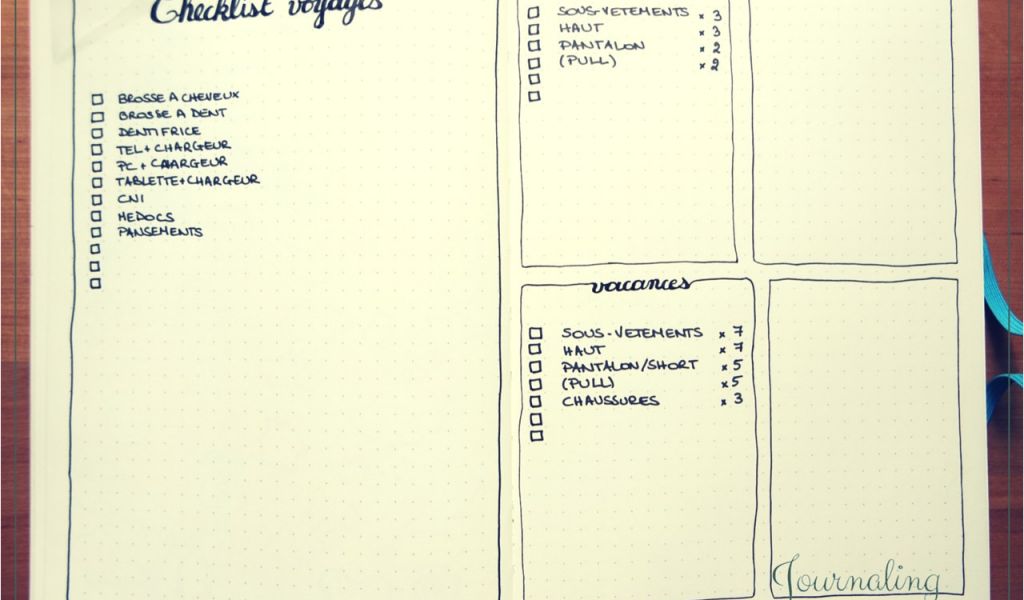 Checklist voyages
BROSSE A CHEVEUX
BROSSE A DENT
DENTIFRICE
TEL + CHARGEUR
PC + CHARGEUR
TABLETTE + CHARGEUR
CNI
MEDOCS
PANSEMENTS
SOUS-VETEMENTS x 3
HAUT x 3
PANTALON x 2
(PULL) x 2
vacances
SOUS-VETEMENTS x 7
HAUT x 7
PANTALON/SHORT x 5
(PULL) x 5
CHAUSSURES x 3
Journaling